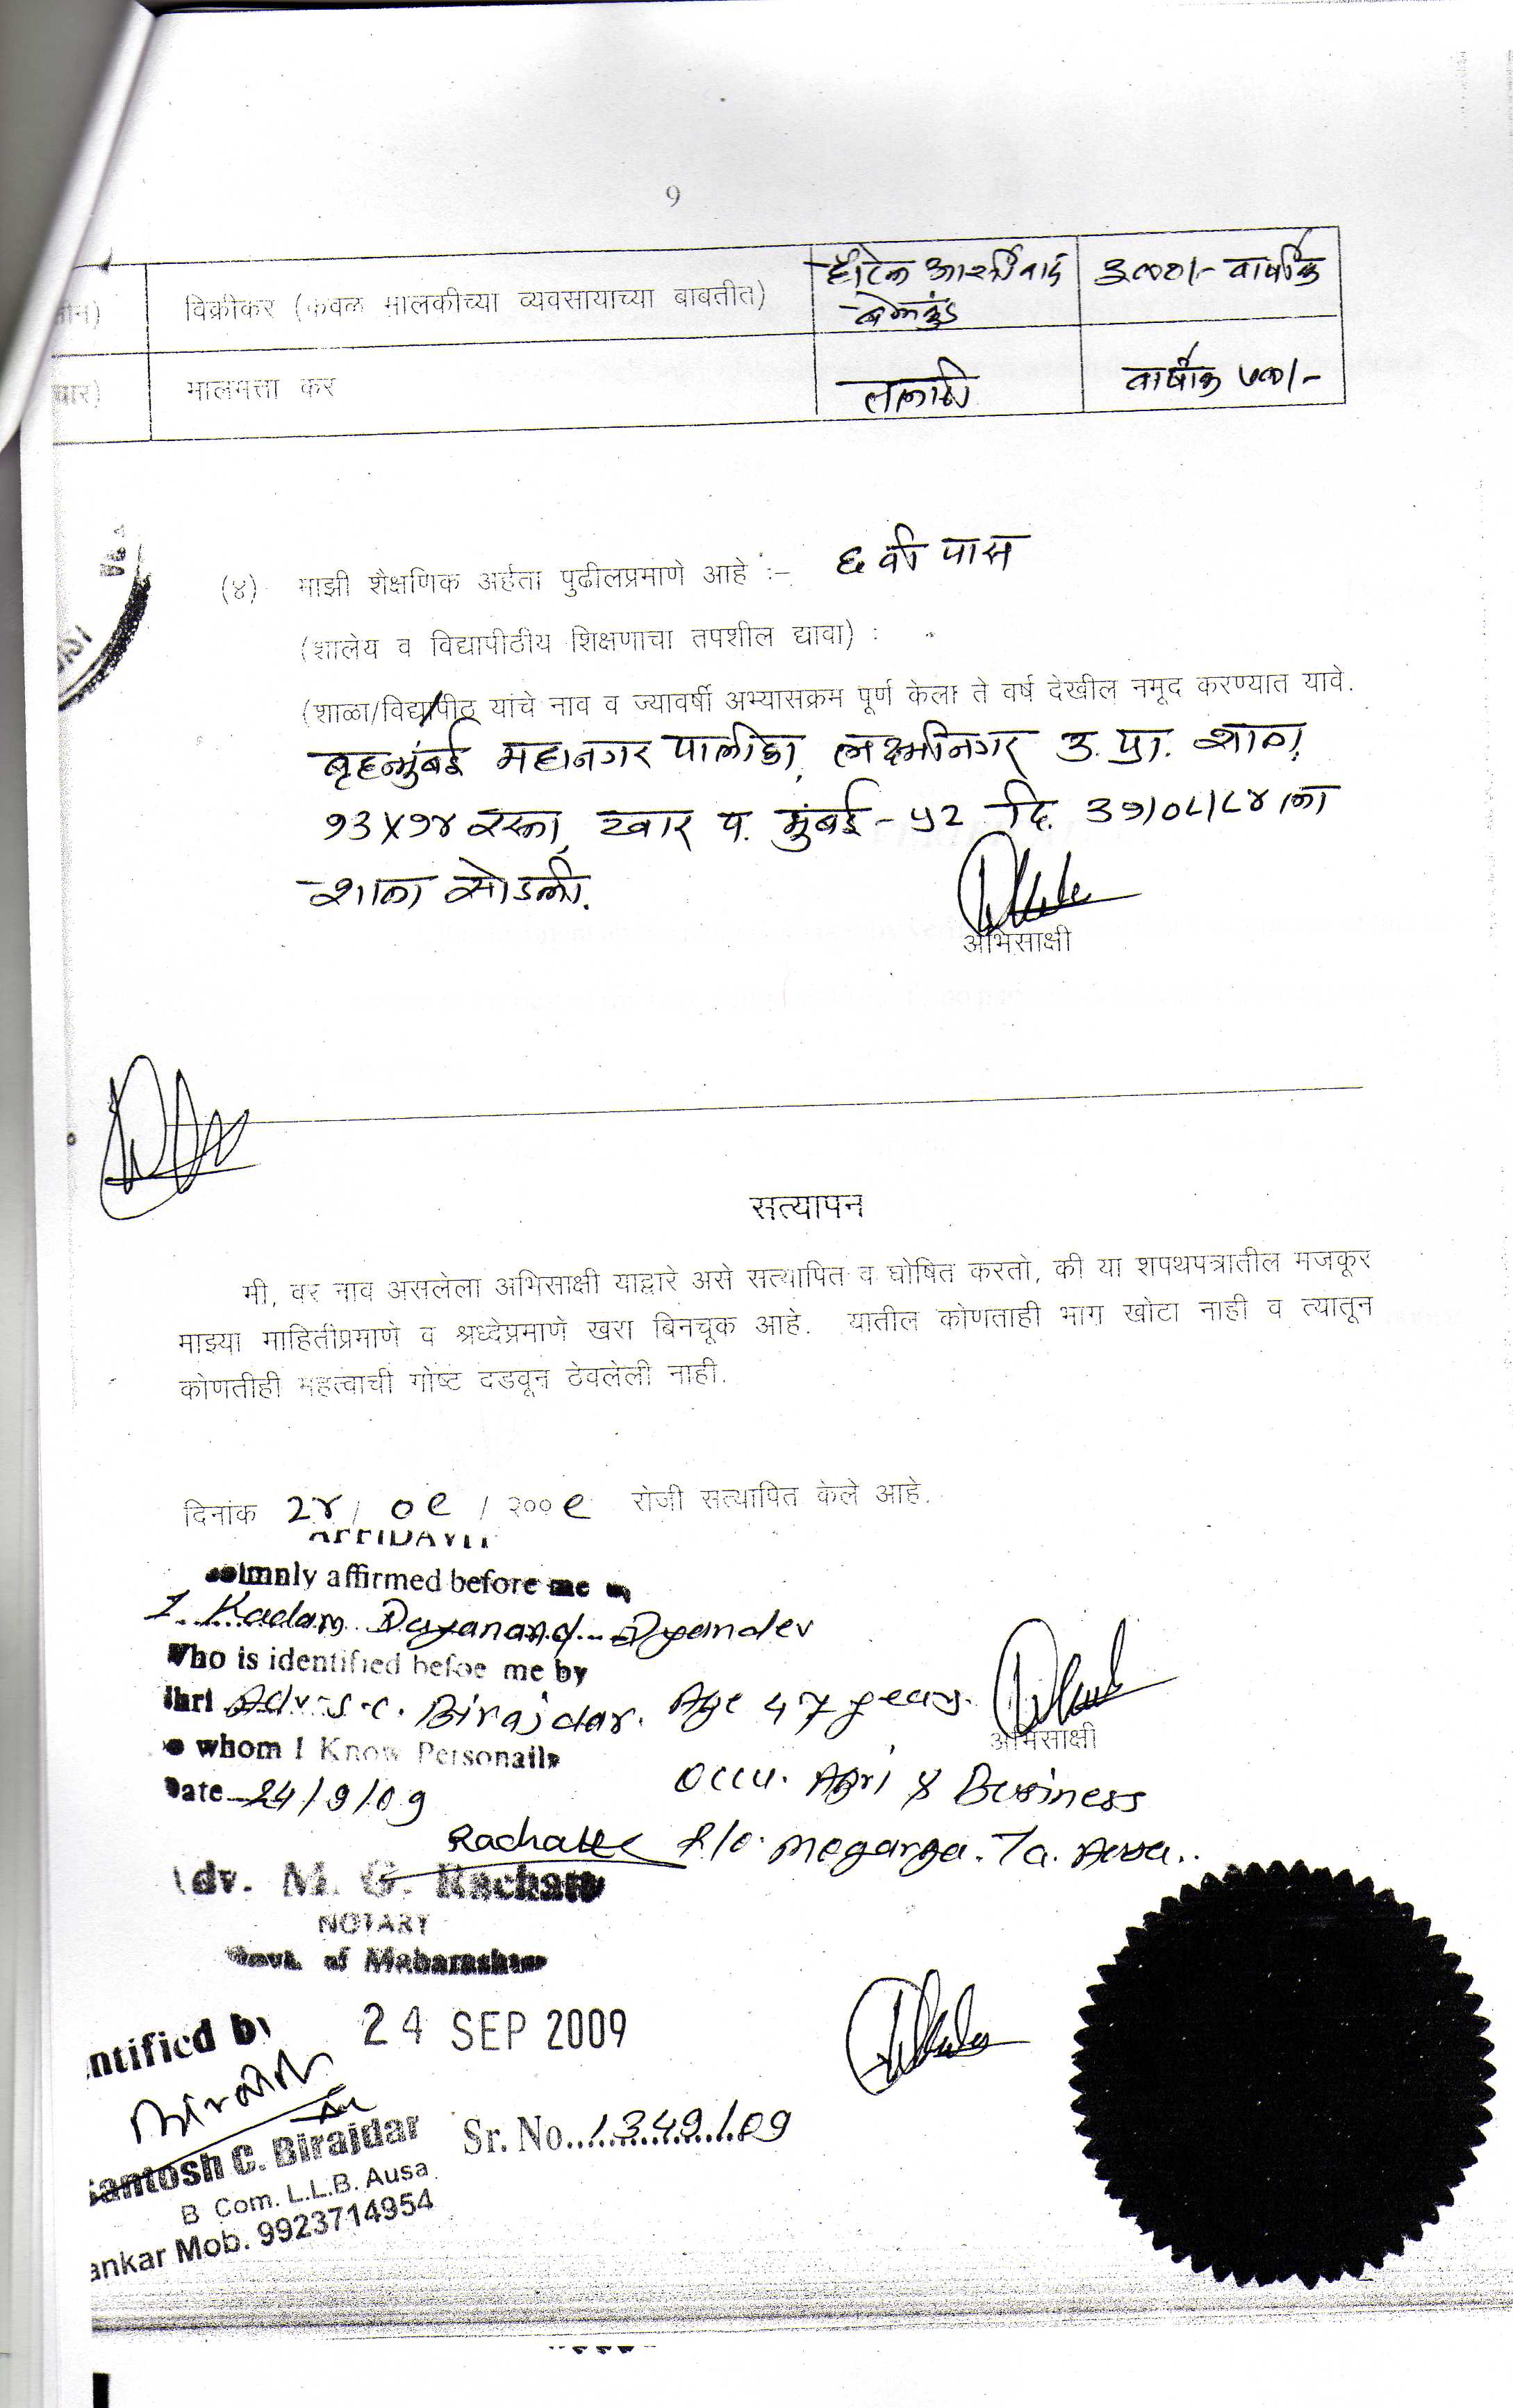 9
विक्रीकर (केवळ मालकीच्या व्यवसायाच्या बाबतीत)
हॉटेल आर्शीवाद ३०००/- वार्षीक
बेलकुंड
मालमत्ता कर तलाठी वार्षीक ७००/-
(४) माझी शैक्षणिक अर्हता पुढीलप्रमाणे आहे :- ६ वी पास
(शालेय व विद्यापीठीय शिक्षणाचा तपशील द्यावा) :
(शाळा/विद्यापीठ यांचे नाव व ज्यावर्षी अभ्यासक्रम पूर्ण केला ते वर्ष देखील नमूद करण्यात यावे.
बृहन्मुंबई महानगर पालीका, लक्ष्मीनगर उ. प्रा. शाळा,
१३x१४ रस्ता, खार प. मुंबई - ५२ दि. ३१/०८/८४ ला
शाळा सोडली.
अभिसाक्षी
सत्यापन
मी, वर नाव असलेला अभिसाक्षी याद्वारे असे सत्यापित व घोषित करतो, की या शपथपत्रातील मजकूर
माझ्या माहितीप्रमाणे व श्रध्देप्रमाणे खरा बिनचूक आहे. यातील कोणताही भाग खोटा नाही व त्यातून
कोणतीही महत्वाची गोष्ट दडवून ठेवलेली नाही.
दिनांक २४ / ०९ / २००९ रोजी सत्यापित केले आहे.
AFFIDAVIT
affirmed before me
I. Kadam Dayanand Dyandev
Who is identified befoe me by
Shri Adv. S. C. Birajdar. Age 47 years.
अभिसाक्षी
whom I Know Personally
Occu. Agri & Business
Date 24/9/09
R/o. Mogarga. Ta. Ausa.
Adv. M. G. Rachatte
NOTARY
Govt. of Maharashtra
24 SEP 2009
ntified by
Santosh C. Birajdar
Sr. No. 1349/09
B Com. L.L.B. Ausa
ankar Mob. 9923714954